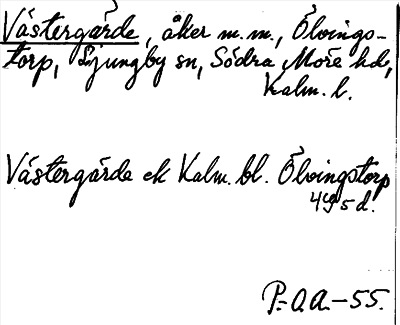 Västergärde, åker m.m., Ölvings-
torp, Ljungby sn, Södra Möre hd,
Kalm. l.
Västergärde ek Kalm. bl. Ölvingstorp
5 d.
P.-O.A.-55.